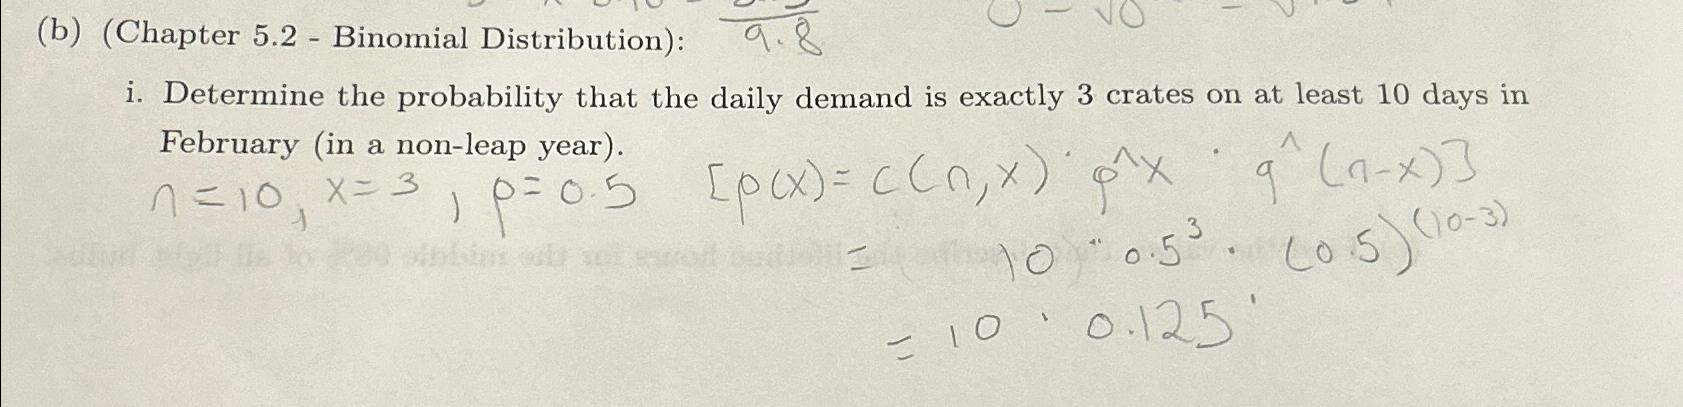 (b) (Chapter 5.2 - Binomial Distribution):
9.8
i. Determine the probability that the daily demand is exactly 3 crates on at least 10 days in
February (in a non-leap year).
n = 10, x = 3, p = 0.5 [p(x) = c(n,x) · p^x · q^(n-x)]
= 10 · 0.5³ · (0.5)⁽¹⁰⁻³⁾
= 10 · 0.125 ·